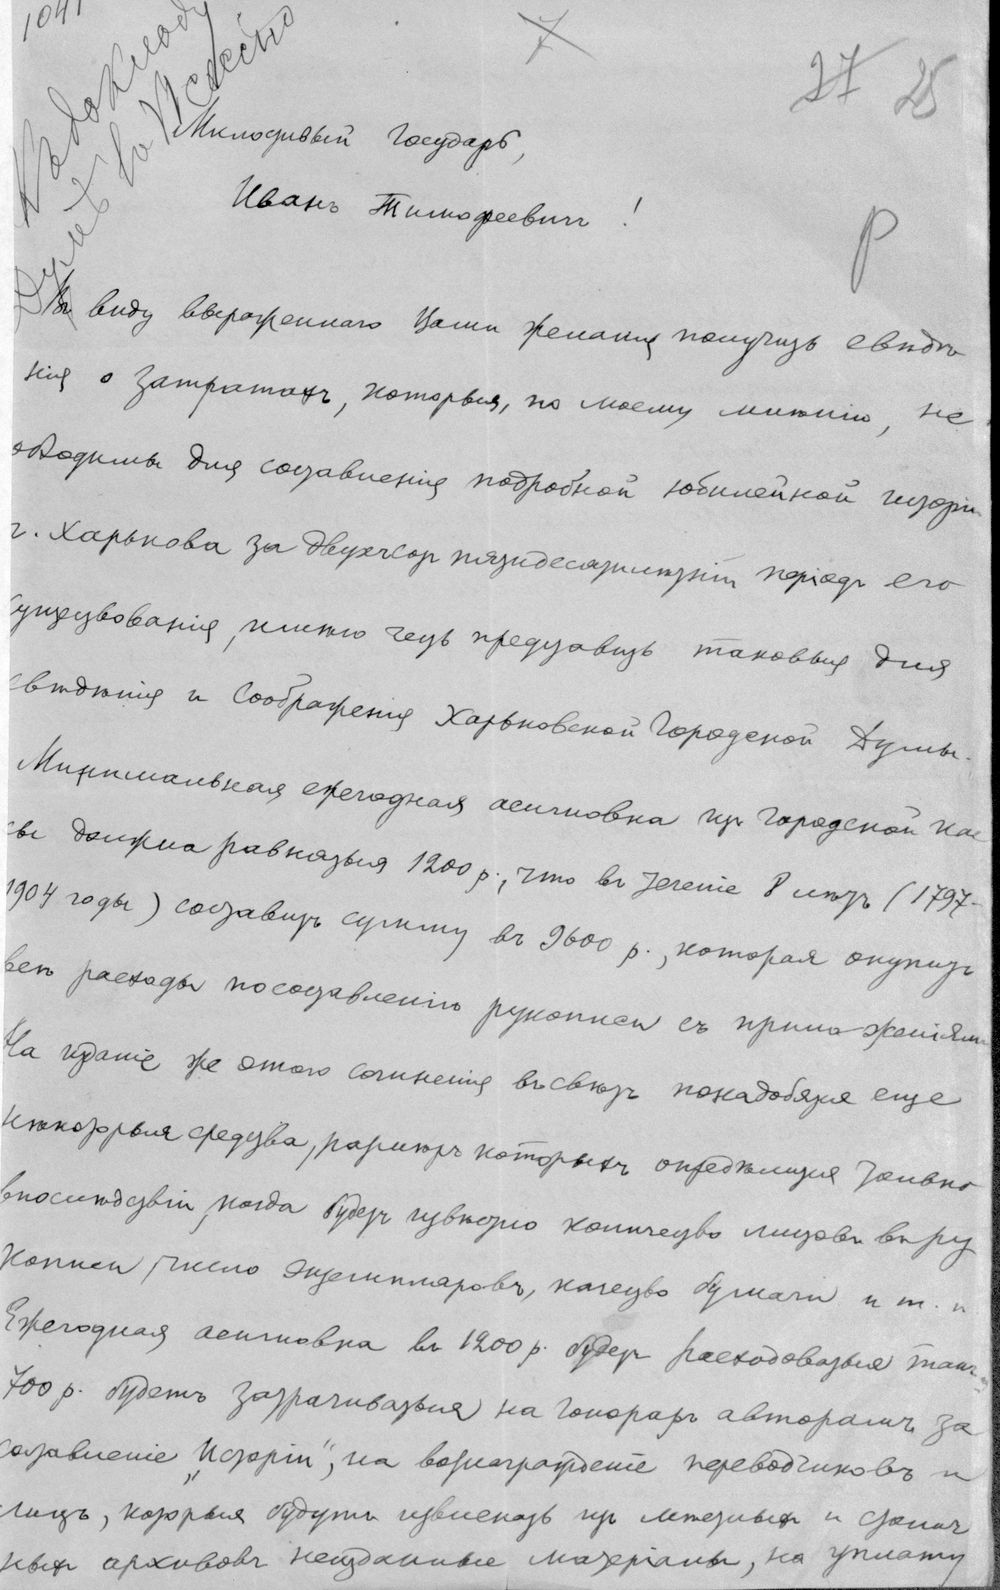 1041
7
27 25
Къ докладу
Милостивый Государь,
Иванъ Тимофеевичъ!
Р
Въ виду выраженнаго Вами желанія получить свѣдѣ
нія о затратахъ, которыя, по моему мнѣнію, не
обходимы для составленія подробной юбилейной исторіи
г. Харькова за двухсотъ пятидесятилѣтній періодъ его
существованія, имѣю честь представить таковыя для
свѣдѣнія и соображенія Харьковской Городской Думы.
Минимальная ежегодная ассигновка изъ городской кас
сы должна равняться 1200 р., что въ теченіе 8 лѣтъ (1797-
1904 годы) составитъ сумму въ 9600 р., которая окупитъ
всѣ расходы по составленію рукописи съ приложеніями
На изданіе же этого сочиненія въ свѣтъ понадобятся еще
нѣкоторыя средства, размѣръ которыхъ опредѣлится только
впослѣдствіи, когда будетъ извѣстно количество листовъ въ ру
кописи, число экземпляровъ, качество бумаги и т. п
Ежегодная ассигновка въ 1200 р. будетъ расходоваться такъ:
700 р. будетъ затрачиваться на гонораръ авторамъ за
составленіе „Исторіи", на вознагражденіе переводчиковъ и
лицъ, которыя будутъ извлекать изъ мѣстныхъ и столич
ныхъ архивовъ неизданные матеріалы, на уплату